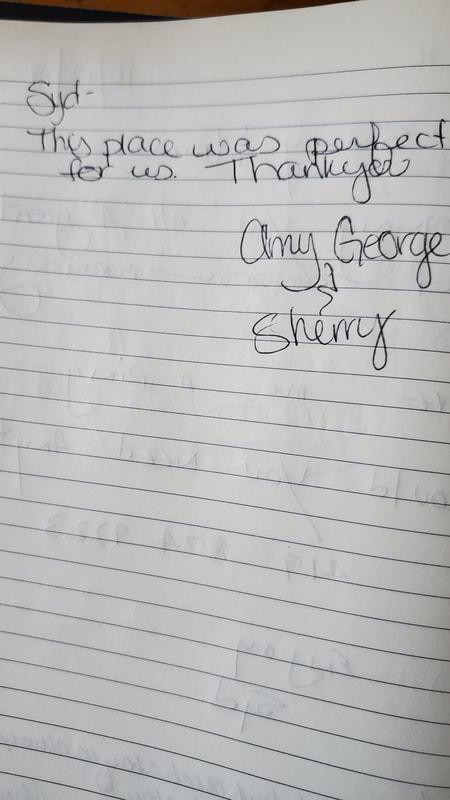 Syd-
This place was perfect
for us. Thankyou
Amy, George
&
Sherry